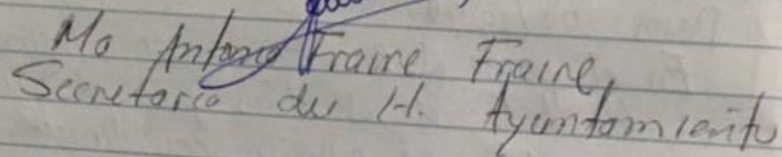 Ma Antonio Fraire Fraire,
Secretario del H. Ayuntamiento